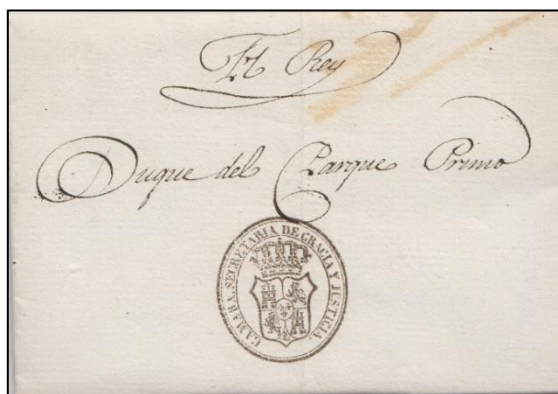 El Rey
Duque del Parque Primo
CAMARA, SECRETARIA DE GRACIA Y JUSTICIA.